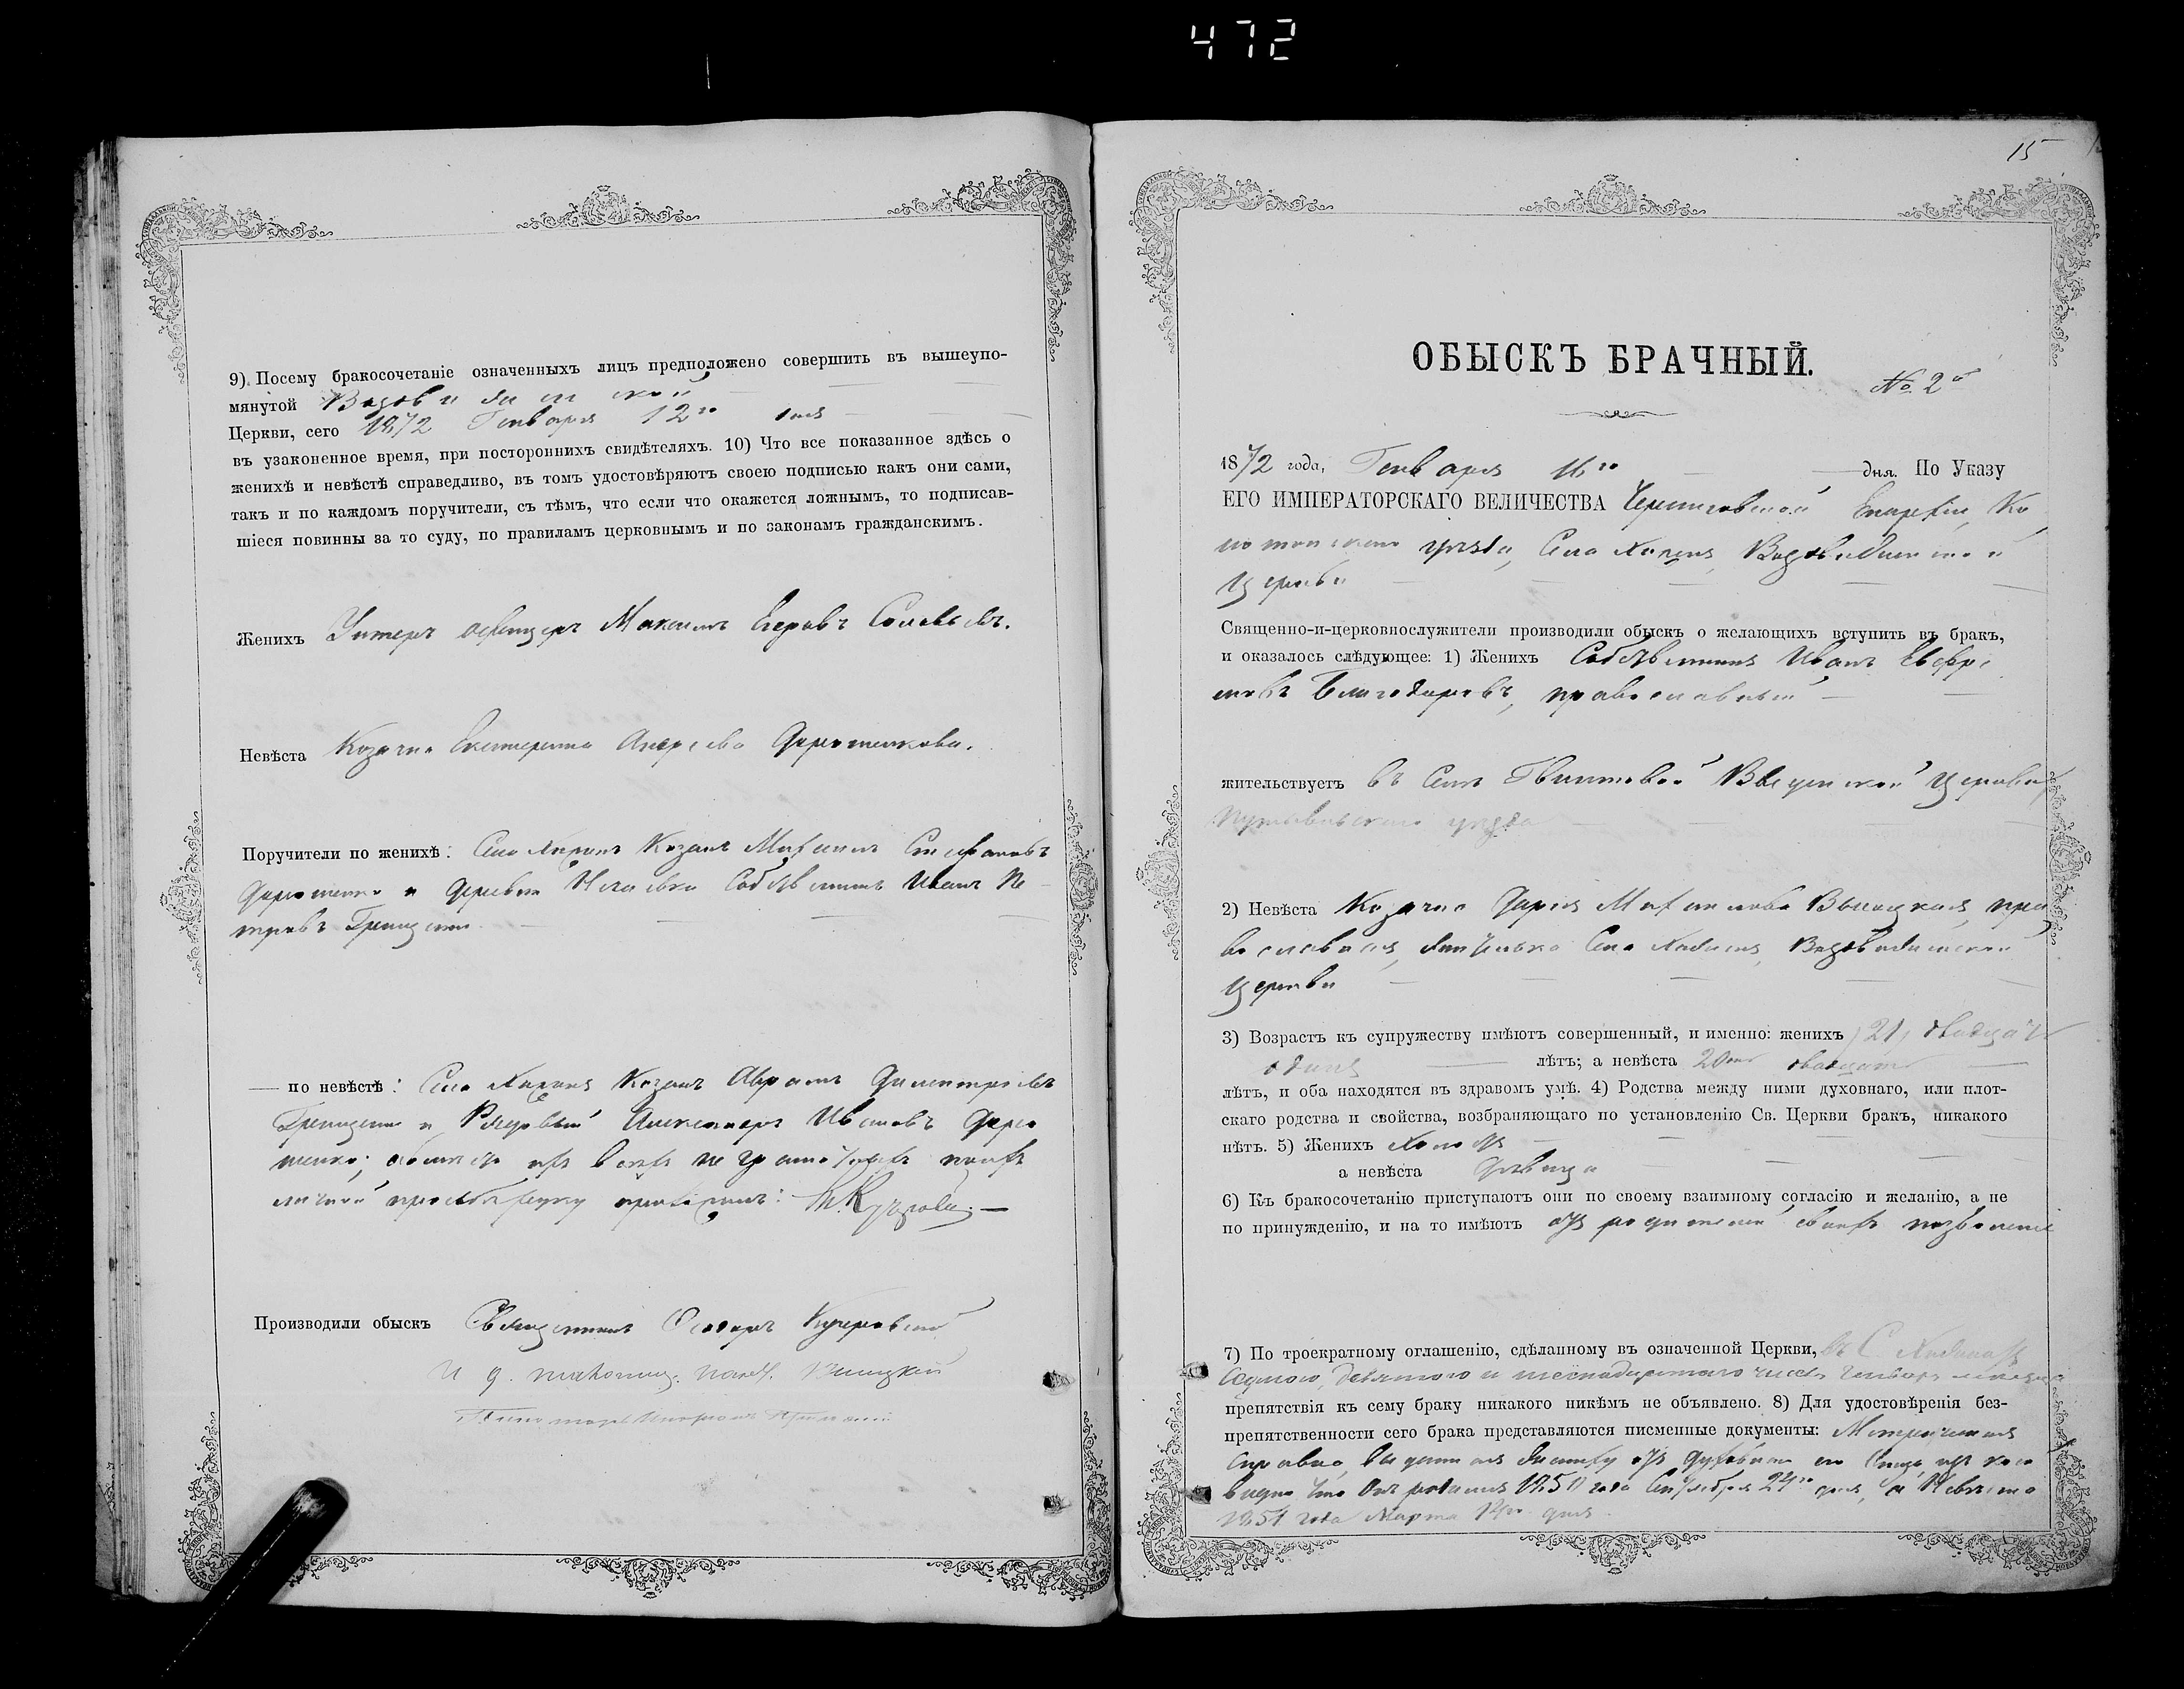 472
9) Посему бракосочетаніе означенныхъ лицъ предположено совершить въ вышеупо-
мянутой Воздвиженской
Церкви, сего 1872 Генваря 12го дня
въ узаконенное время, при постороннихъ свидѣтеляхъ. 10) Что все показанное здѣсь о
женихѣ и невѣстѣ справедливо, въ томъ удостовѣряютъ своею подписью какъ они сами,
такъ и по каждомъ поручители, съ тѣмъ, что если что окажется ложнымъ, то подписав-
шіеся повинны за то суду, по правиламъ церковнымъ и по законамъ гражданскимъ.
Женихъ Унтеръ офицеръ Максимъ Егоровъ Соловьевъ.
Невѣста Козачка Екатерина Андреева Дорошенкова.
Поручители по женихѣ: Села Козакъ Михаилъ Стефановъ
Дорошенко и деревни Собственникъ Иванъ Пе-
тровъ Грищенко
по невѣстѣ: Села Козакъ Аврамъ Димитріевъ
Грищенко и Рядовый Александръ Ивановъ Доро
шенко; а вместо ихъ всехъ неграмотныхъ по ихъ
личной прозьбе руку приложилъ:
Производили обыскъ Священникъ Феодоръ Кучеровскій
И д.
15
ОБЫСКЪ БРАЧНЫЙ.
№ 2й
1872 года, Генваря 16го дня. По Указу
ЕГО ИМПЕРАТОРСКАГО ВЕЛИЧЕСТВА Черниговской Епархіи, Ко
нотопскаго уѣзда, Села Воздвиженской
Церкви
Священно-и-церковнослужители производили обыскъ о желающихъ вступить въ бракъ,
и оказалось слѣдующее: 1) Женихъ Собственникъ Иванъ
Благодаровъ, православный
жительствуетъ въ Селѣ Гвинтовой Введенской Церкви
Путивльскаго уѣзда
2) Невѣста Козачка Дарія Михаилова пра
вославная, жителька Села Воздвиженской
Церкви
3) Возрастъ къ супружеству имѣютъ совершенный, и именно: женихъ 21, двадцать
одинъ лѣтъ; а невѣста 20ть двадцать
лѣтъ, и оба находятся въ здравомъ умѣ. 4) Родства между ними духовнаго, или плот-
скаго родства и свойства, возбраняющаго по установленію Св. Церкви бракъ, никакого
нѣтъ. 5) Женихъ Холостъ
а невѣста Дѣвица
6) Къ бракосочетанію приступаютъ они по своему взаимному согласію и желанію, а не
по принужденію, и на то имѣютъ отъ родителей своихъ позволеніе
7) По троекратному оглашенію, сдѣланному въ означенной Церкви, въ С.
Седмого, девятого и шестнадцатаго чиселъ Генваря месяца
препятствія къ сему браку никакого никѣмъ не объявлено. 8) Для удостовѣренія без-
препятственности сего брака представляются писменные документы: Метрическая
Справка, выданная жениху отъ Духовнаго его Отца, изъ коей
видно что онъ родился 1850 года Сентября 24го дня, а Невѣста
1851 года Марта дня